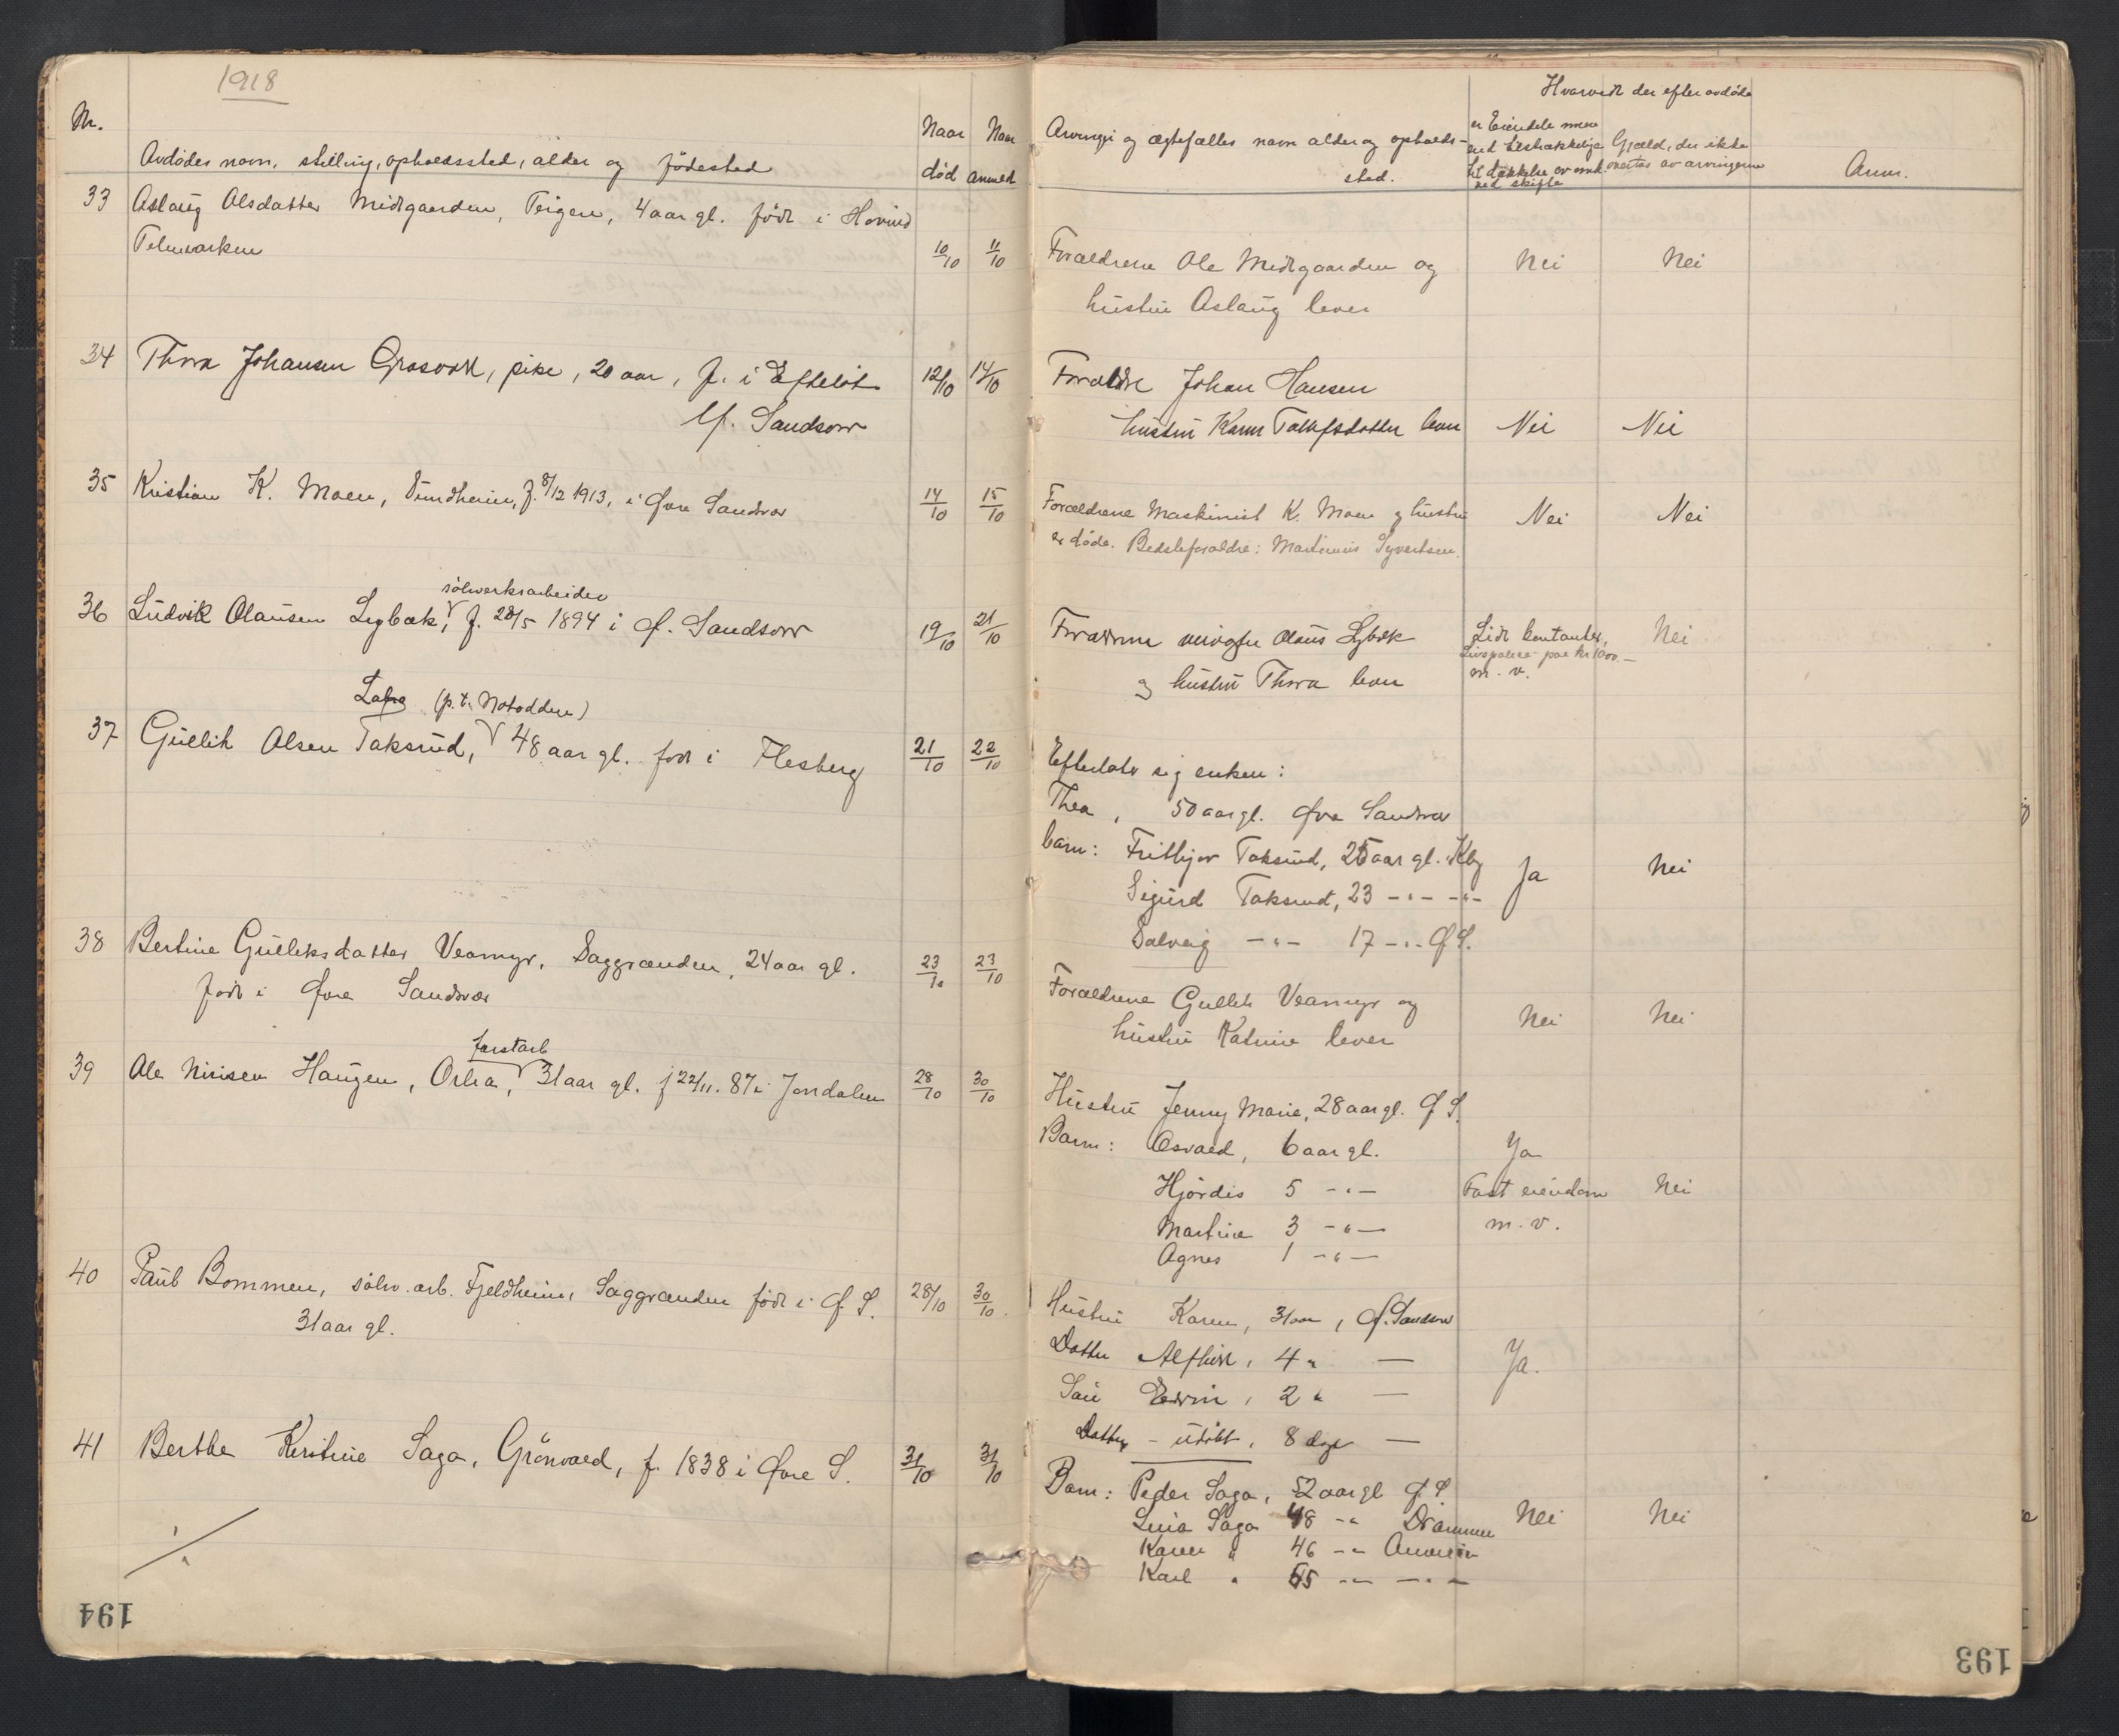 1918
Nr.
Avdödes navn, stilling, opholdssted, alder og födested
Naar död
Naar anmeldt
Arvinger og ægtefælles navn alder og opholds-
sted.
Hvorvidt der efter avdöde
er Eiendele mere
end tilstrækkelige
til dækkelse av omk.
ved skifte
Gjæld, der ikke
overtas av arvingerne
Anm.
33 Aslaug Olsdatter Midtgaarden, Teigen, 4 aar gl. född i Hovind
Telemarken 10/10 11/10
Forældrene Ole Midtgaarden og Nei Nei
hustru Aslaug lever
34 Thora Johansen Grosvold, pike, 20 aar, f. i Efteløt 12/10 14/10
Ø. Sandsvær
Forældre Johan Hansen
hustru Karen Tollefsdatter lever Nei Nei
35 Kristian K. Moen, Trondheim, f. 8/12 1913, i Øvre Sandsvær 14/10 15/10
Forældrene Maskinist K. Moen og hustru Nei Nei
er döde. Bedsteforældre: Martinius Syvertsen.
sölvverksarbeider
36 Ludvik Olausen Lybæk, f. 28/5 1894 i Ø. Sandsvær 19/10 21/10
Forældrene Olaus Lybæk
og hustru Thora lever
Lidt kontanter,
Livspolice paa kr 1000.—
m. v.
Nei
(p. t. Notodden)
37 Gullik Olsen Taksrud, 48 aar gl. född i Flesberg 21/10 22/10
Efterlater sig enken:
Thea, 50 aar gl. Øvre Sandsvær
barn: Frithjov Taksrud, 25 aar gl. Kbg
Sigurd Taksrud, 23 -"- -"-
Solveig -"- 17 -"- Ø S.
Ja Nei
38 Bertine Gulliksdatter Veamyr, Saggrenden, 24 aar gl. 23/10 23/10
född i Øvre Sandsvær
Forældrene Gullik Veamyr og
hustru Katrine lever
Nei Nei
forstarb
39 Ole Nirisen Haugen, Orha, 31 aar gl. f 22/11. 87 i Jondalen 28/10 30/10
Hustru Jenny Marie, 28 aar gl. Ø S.
Barn: Osvald, 6 aar gl. Ja
Hjördis 5 -"- Fast eiendom Nei
Martine 3 -"- m. v.
Agnes 1 -"-
40 Paul Bommen, sölvv. arb. Fjeldheim, Saggrenden född i Ø. S. 28/10 30/10
31 aar gl.
Hustru Karen, 31 aar, Ø. Sandsvær
Datter Alfhild, 4 " — Ja.
Sön Edvin, 2 " —
Datter - udöbt, 8 dage —
41 Berthe Kirstine Saga, Grönvold, f. 1838 i Øvre S. 31/10 31/10
Barn: Peder Saga, 52 aar gl Ø. S.
Lina Saga 48 -" Drammen Nei Nei
Karen " 46 -" Amerika
Karl " 55 -"- -"-
194
193